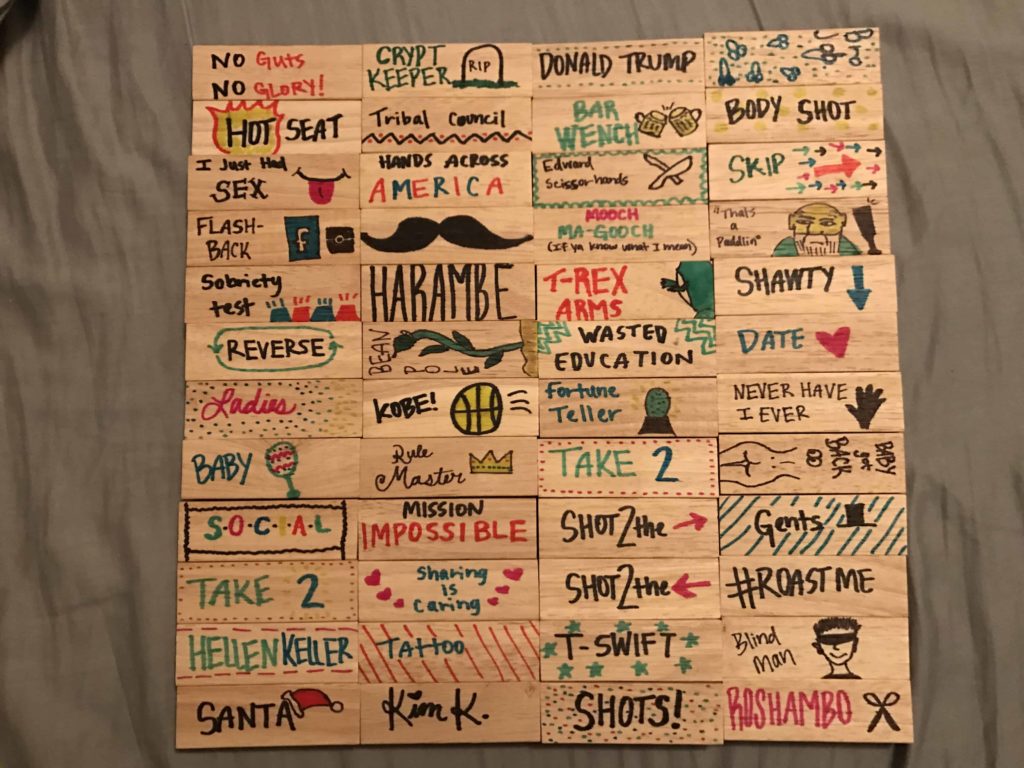 NO Guts
NO GLORY!
CRYPT
KEEPER
RIP
DONALD TRUMP
HOT SEAT
Tribal Council
BAR
WENCH
BODY SHOT
I Just Had
SEX
HANDS ACROSS
AMERICA
Edward
Scissorhands
SKIP
FLASH-
BACK
f
MOOCH
MA-GOOCH
(If ya know what I mean)
"Thats
a
Paddlin"
Sobriety
test
HARAMBE
T-REX
ARMS
SHAWTY
REVERSE
BEAN
POLE
WASTED
EDUCATION
DATE
Ladies
KOBE!
Fortune
Teller
NEVER HAVE
I EVER
BABY
Rule
Master
TAKE 2
BABY
got
BACK
S·O·C·I·A·L
MISSION
IMPOSSIBLE
SHOT 2 the
Gents
TAKE 2
Sharing
is
Caring
SHOT 2 the
#ROASTME
HELLEN KELLER
Tattoo
T-SWIFT
Blind
man
SANTA
Kim K.
SHOTS!
ROSHAMBO